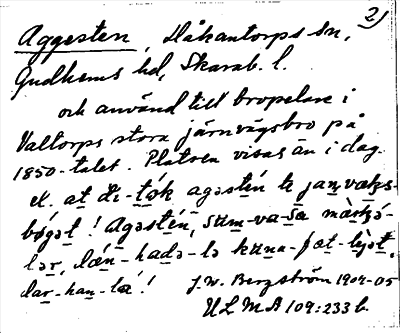 2)
Aggesten, Håkantorps sn,
Gudhems hd, Skarab. l.
och använd till bropelare i
Valtorps stora järnvägsbro på
1850-talet. Platsen visas än i dag.
at agəstén
bógət! Agəstén, sum-va-sa
lær, dæn-hadə-lə
dar-han-la!
J. W. Bergström 1904-05
ULMA 109:233 b.